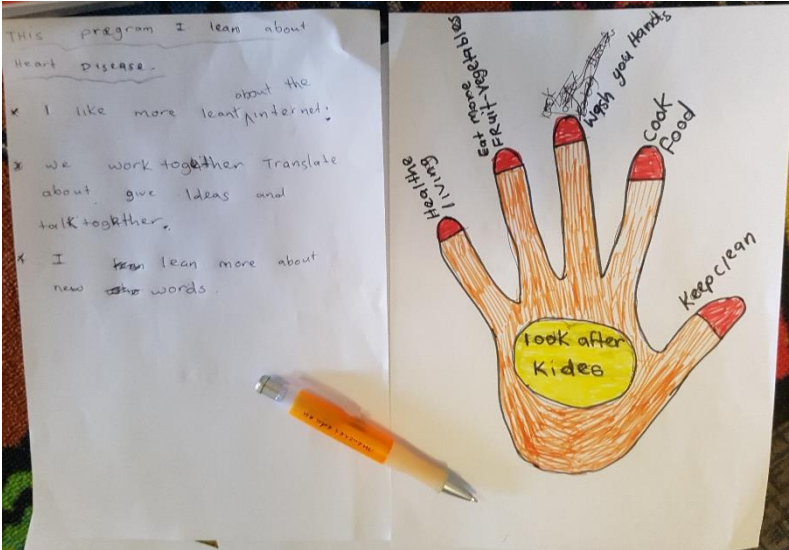 THIS program I lean about
Heart DISEASE.
* I like more leant about the internet.
* we work together Translate
about give Ideas and
talk togkther.
* I lean more about
new words.
Healthe
living
Eat more
FRuit-vegetables
Wash you Hands
Cook
food
Keep clean
look after
Kides